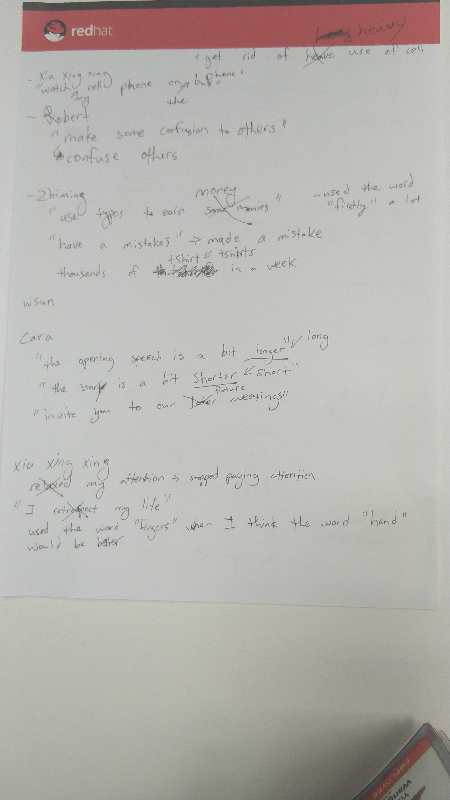 redhat
heavy
"get rid of heave use of cell phone"
- Xiu xing xing
"watch cell phone on a bus"
the
- Robert
"make some confusion to others"
confuse others
- Zhiming
money
"use types to earn some monies"
- used the word "firstly" a lot
"have a mistakes" → made a mistake
tshirt & tshirts
thousands of in a week
wsun
Cara
"the opening speech is a bit longer" ↙ long
"the is a bit shorter ↙ short"
future
"invite you to our later meetings"
xiu xing xing
relaxed my attention → stopped paying attention
"I retrospect my life"
used the word "fingers" when I think the word "hand"
would be better